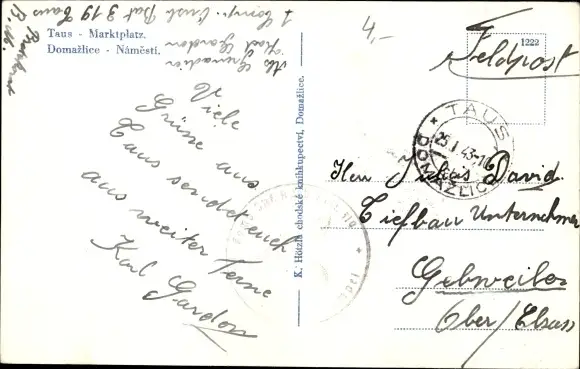 Taus - Marktplatz.
Domažlice - Náměstí.
Abs Grenadier
Karl Gardon
1 Komp. Ers. Bat 319 Taus
Viele
Grüsse aus
Taus sendet euch
aus weiter Ferne
Karl Gardon
K. Hötzls chodské knihkupectví, Domažlice.
4,–
1222
Feldpost
TAUS
25.I.43-16
DOMAŽLICE
Herr Julius David
Tiefbau Unternehmer
Gebweiler
Ober/Elsass